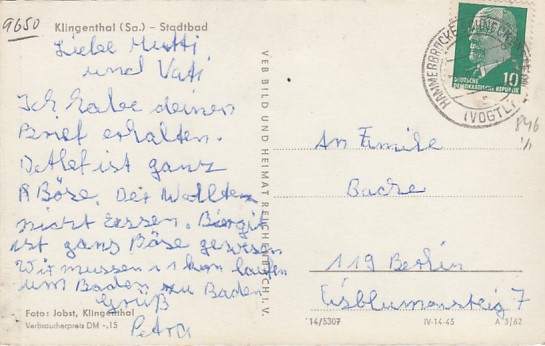 9650
Klingenthal (Sa.) – Stadtbad
Liebe Mutti
und Vati
Ich habe deinen
Brief erhalten.
Detlef ist ganz
Böse. Der Wollte
nicht Essen. Birgit
ist ganz Böse gewesen
Wir mussen 11 km laufen
um Baden zu Baden
Gruß
Petra
Foto: Jobst, Klingenthal
Verbraucherpreis DM -.15
VEB BILD UND HEIMAT REICHENBACH I. V.
HAMMERBRÜCKE
(VOGTL)
10
DEUTSCHE
DEMOKRATISCHE REPUBLIK
An Familie
Backe
119 Berlin
Eisblumensteig 7
14/5307
IV-14-45
A 3/62